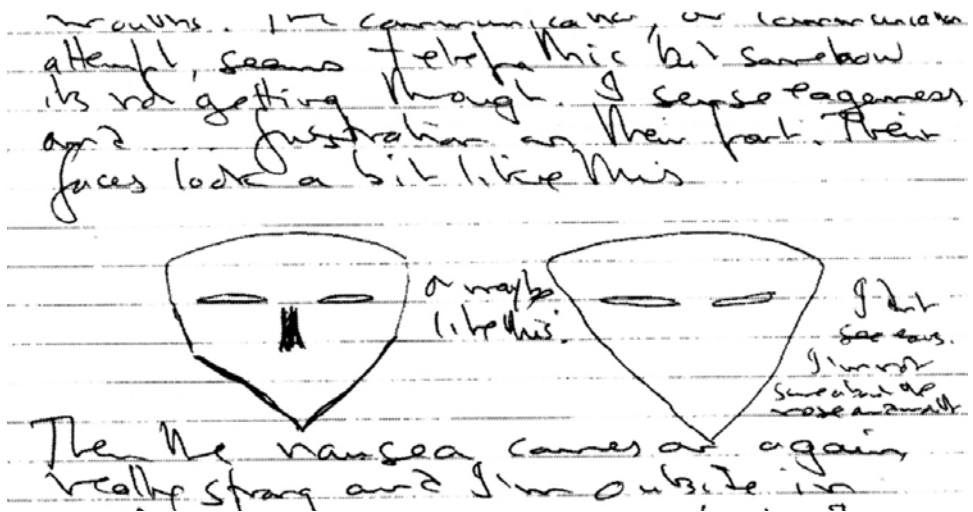 mouths. The communication, or communication
attempt, seems telepathic but somehow
its not getting through. I sense eagerness
and ... frustration on their part. Their
faces look a bit like this
or maybe
like this.
I don't
see ears.
I'm not
sure about the
nose and mouth
Then the nausea comes on again,
really strong and I'm outside in